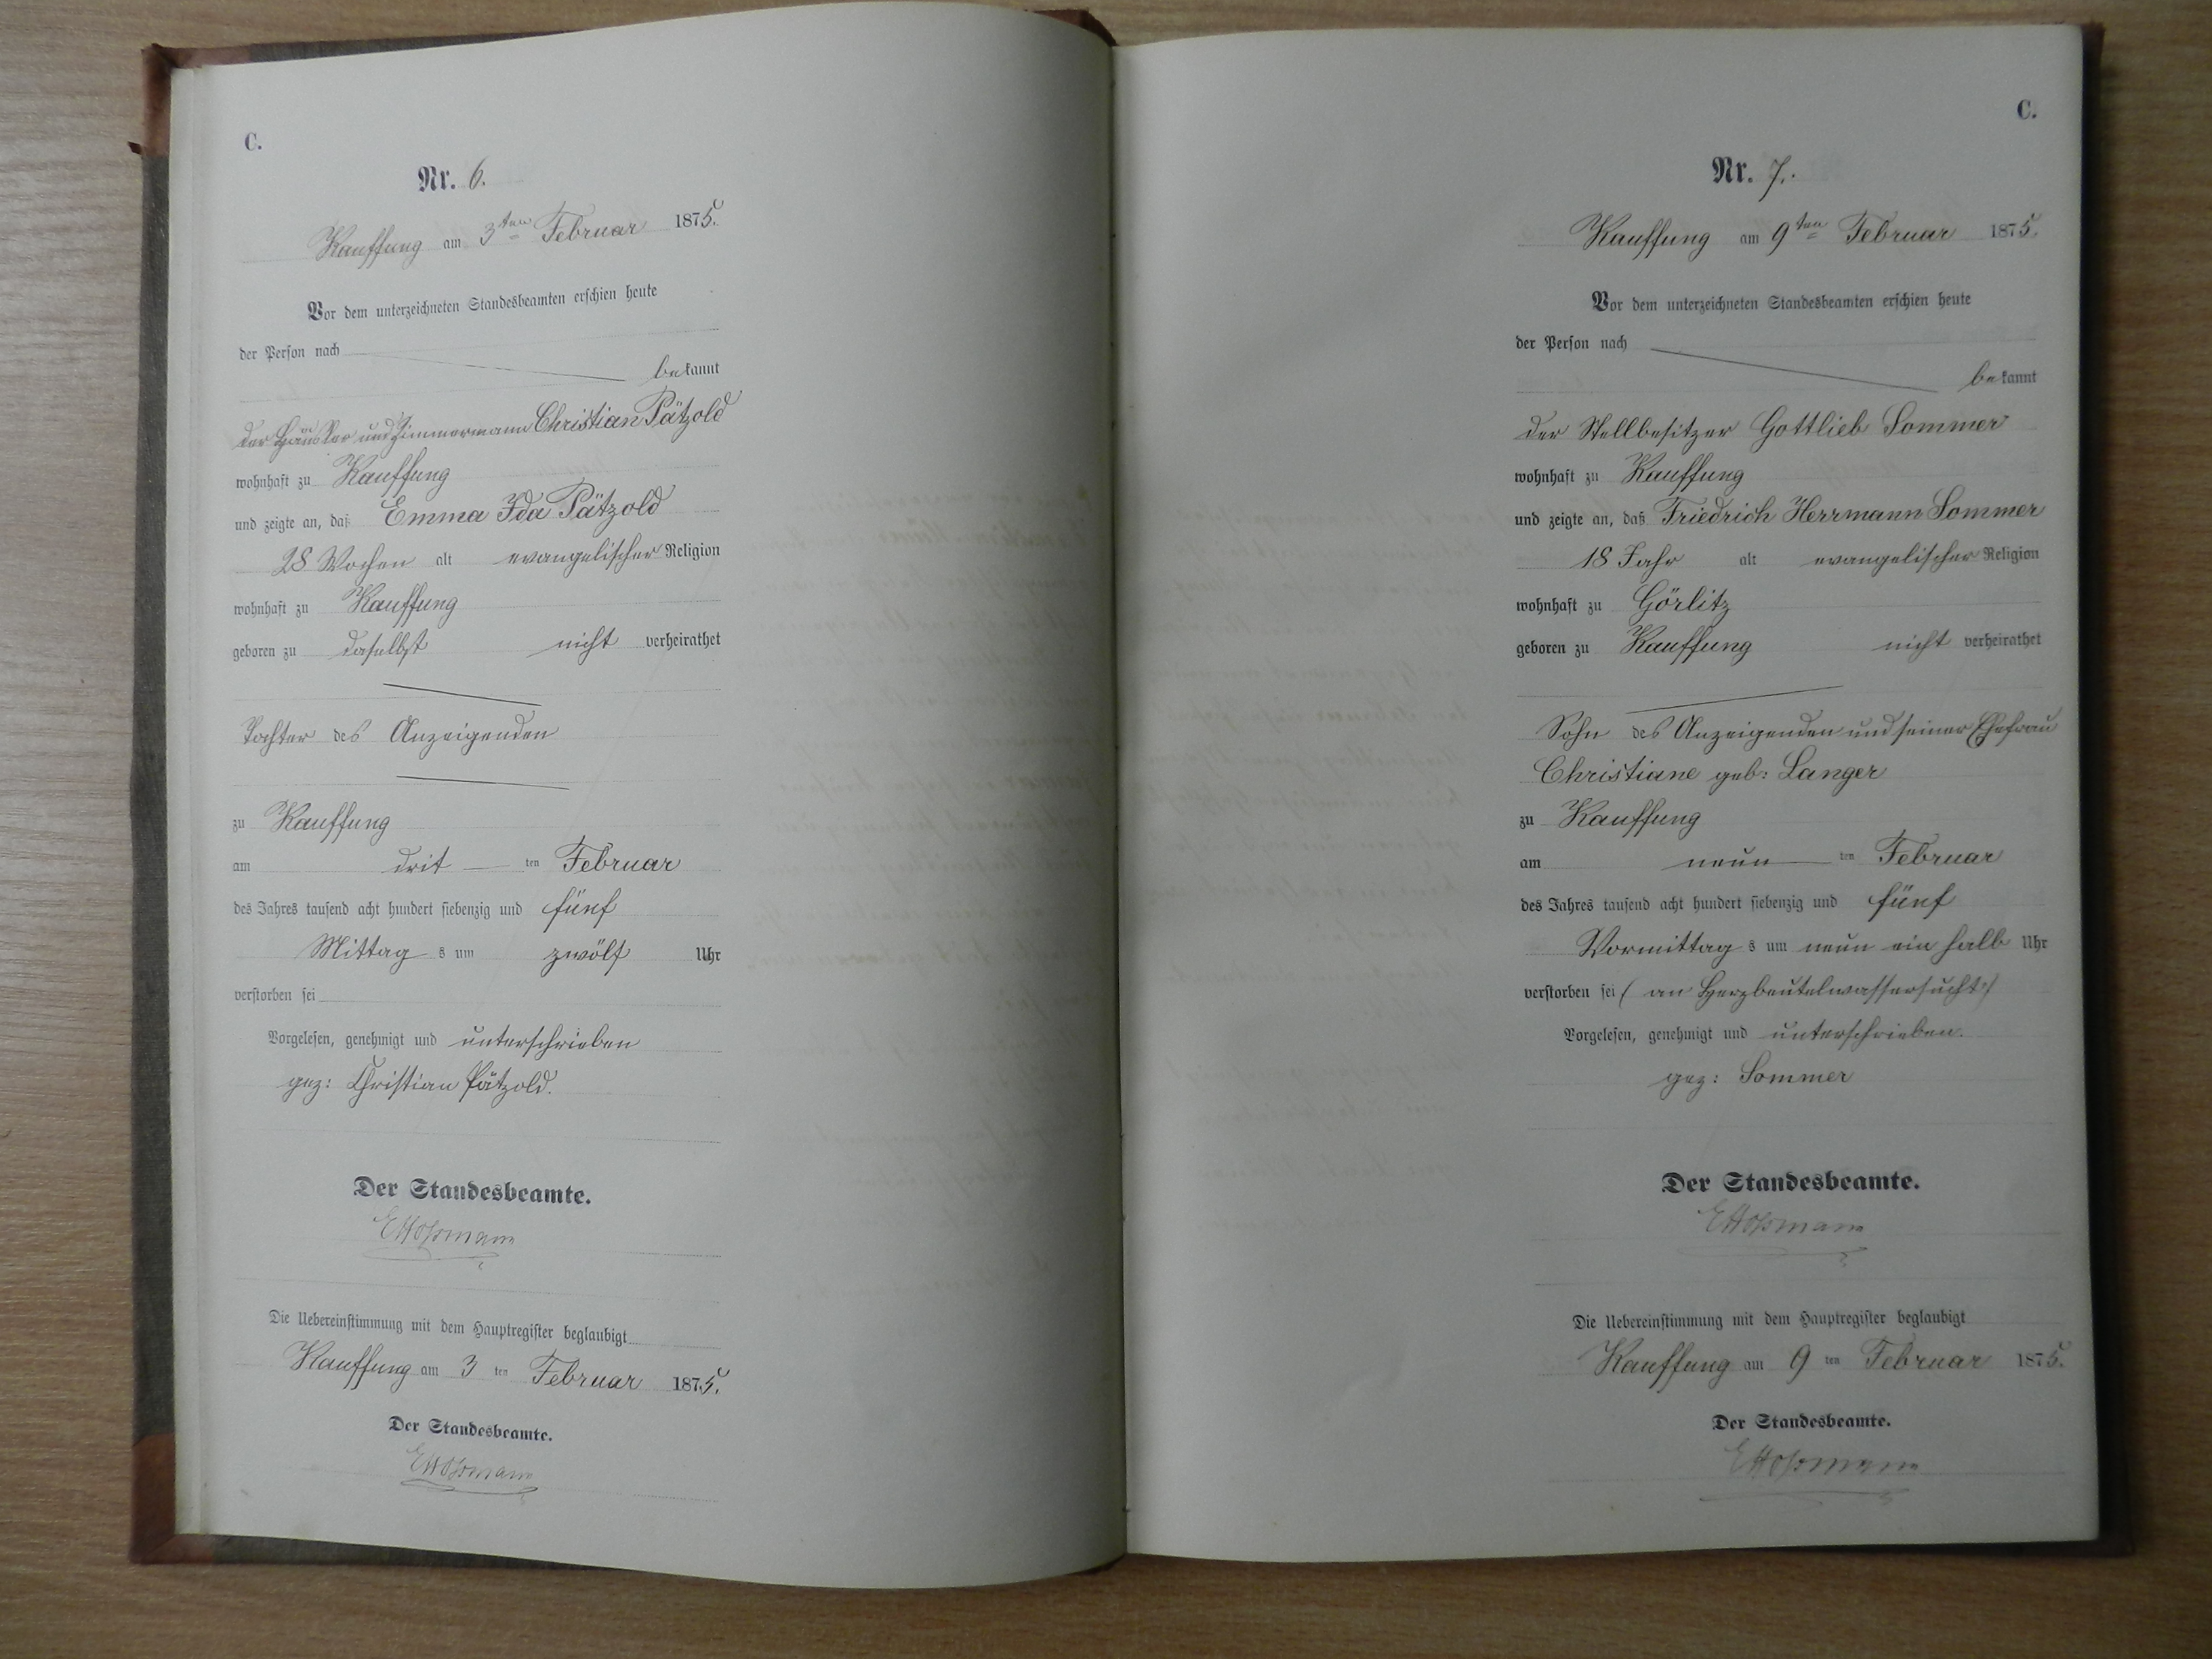 C.
Nr. 6.
Kauffung am 3ten Februar 1875.
Vor dem unterzeichneten Standesbeamten erschien heute
der Person nach
bekannt
der Häusler und Zimmermann Christian Pätzold
wohnhaft zu Kauffung
und zeigte an, daß Emma Ida Pätzold
28 Wochen alt evangelischer Religion
wohnhaft zu Kauffung
geboren zu daselbst nicht verheirathet
Tochter des Anzeigenden
zu Kauffung
am drit ten Februar
des Jahres tausend acht hundert siebenzig und fünf
Mittag s um zwölf Uhr
verstorben sei
Vorgelesen, genehmigt und unterschrieben
gez: Christian Pätzold.
Der Standesbeamte.
Die Uebereinstimmung mit dem Hauptregister beglaubigt
Kauffung am 3 ten Februar 1875.
Der Standesbeamte.
C.
Nr. 7.
Kauffung am 9ten Februar 1875.
Vor dem unterzeichneten Standesbeamten erschien heute
der Person nach
bekannt
der Stellbesitzer Gottlieb Sommer
wohnhaft zu Kauffung
und zeigte an, daß Friedrich Herrmann Sommer
18 Jahr alt evangelischer Religion
wohnhaft zu Görlitz
geboren zu Kauffung nicht verheirathet
Sohn des Anzeigenden und seiner Ehefrau
Christiane geb: Langer
zu Kauffung
am neun ten Februar
des Jahres tausend acht hundert siebenzig und fünf
Vormittag s um neun ein halb Uhr
verstorben sei (an Herzbeutelwassersucht)
Vorgelesen, genehmigt und unterschrieben.
gez: Sommer
Der Standesbeamte.
Die Uebereinstimmung mit dem Hauptregister beglaubigt
Kauffung am 9 ten Februar 1875.
Der Standesbeamte.